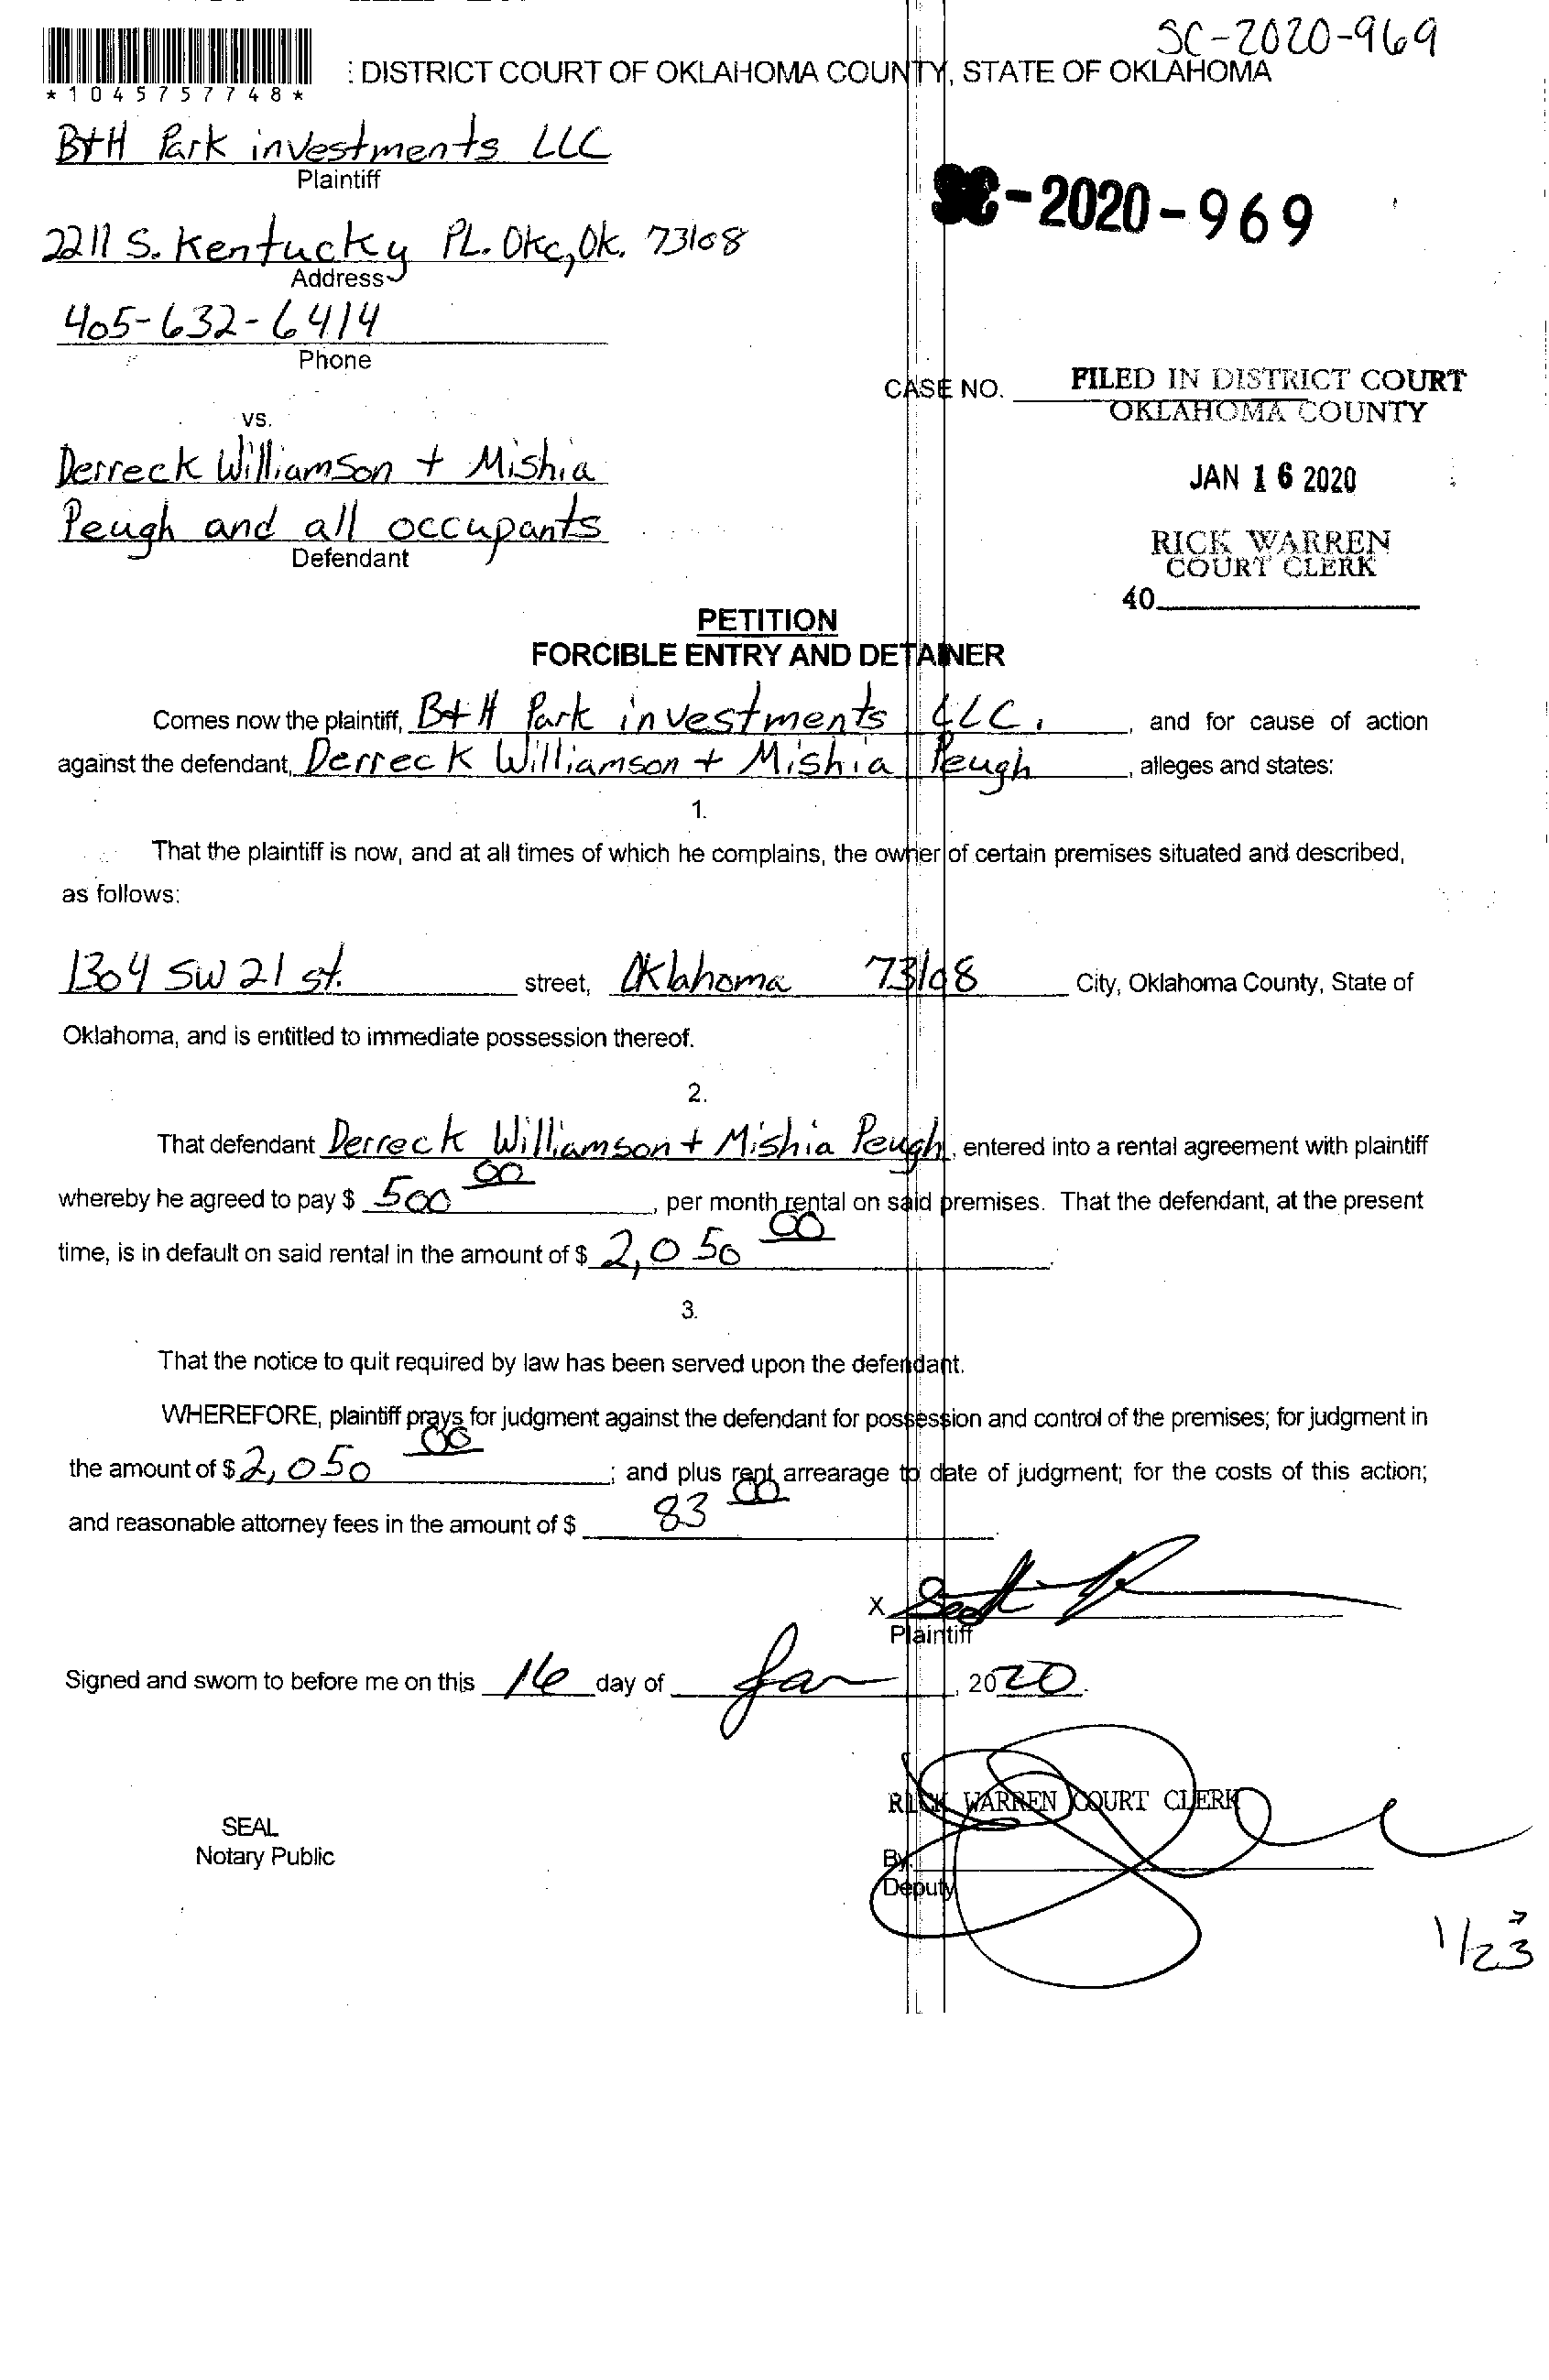 SC-2020-969
*1045757748*
: DISTRICT COURT OF OKLAHOMA COUNTY, STATE OF OKLAHOMA
B+H Park investments LLC
Plaintiff
SC-2020-969
2211 S. Kentucky PL. Okc, Ok. 73108
Address
405-632-6414
Phone
CASE NO.
FILED IN DISTRICT COURT
OKLAHOMA COUNTY
vs.
Derreck Williamson + Mishia
Peugh and all occupants
Defendant
JAN 16 2020
RICK WARREN
COURT CLERK
40
PETITION
FORCIBLE ENTRY AND DETAINER
Comes now the plaintiff, B+H Park investments LLC. , and for cause of action
against the defendant, Derreck Williamson + Mishia Peugh , alleges and states:
1.
That the plaintiff is now, and at all times of which he complains, the owner of certain premises situated and described,
as follows:
1304 SW 21 st. street, Oklahoma 73108 City, Oklahoma County, State of
Oklahoma, and is entitled to immediate possession thereof.
2.
That defendant Derreck Williamson + Mishia Peugh, entered into a rental agreement with plaintiff
whereby he agreed to pay $ 500 00, per month rental on said premises. That the defendant, at the present
time, is in default on said rental in the amount of $ 2,050 00.
3.
That the notice to quit required by law has been served upon the defendant.
WHEREFORE, plaintiff prays for judgment against the defendant for possession and control of the premises; for judgment in
the amount of $ 2,050 00; and plus rent arrearage to date of judgment; for the costs of this action;
and reasonable attorney fees in the amount of $ 83 00.
X
Plaintiff
Signed and sworn to before me on this 16 day of Jan, 2020.
RICK WARREN COURT CLERK
SEAL
Notary Public
By:
Deputy
1/23